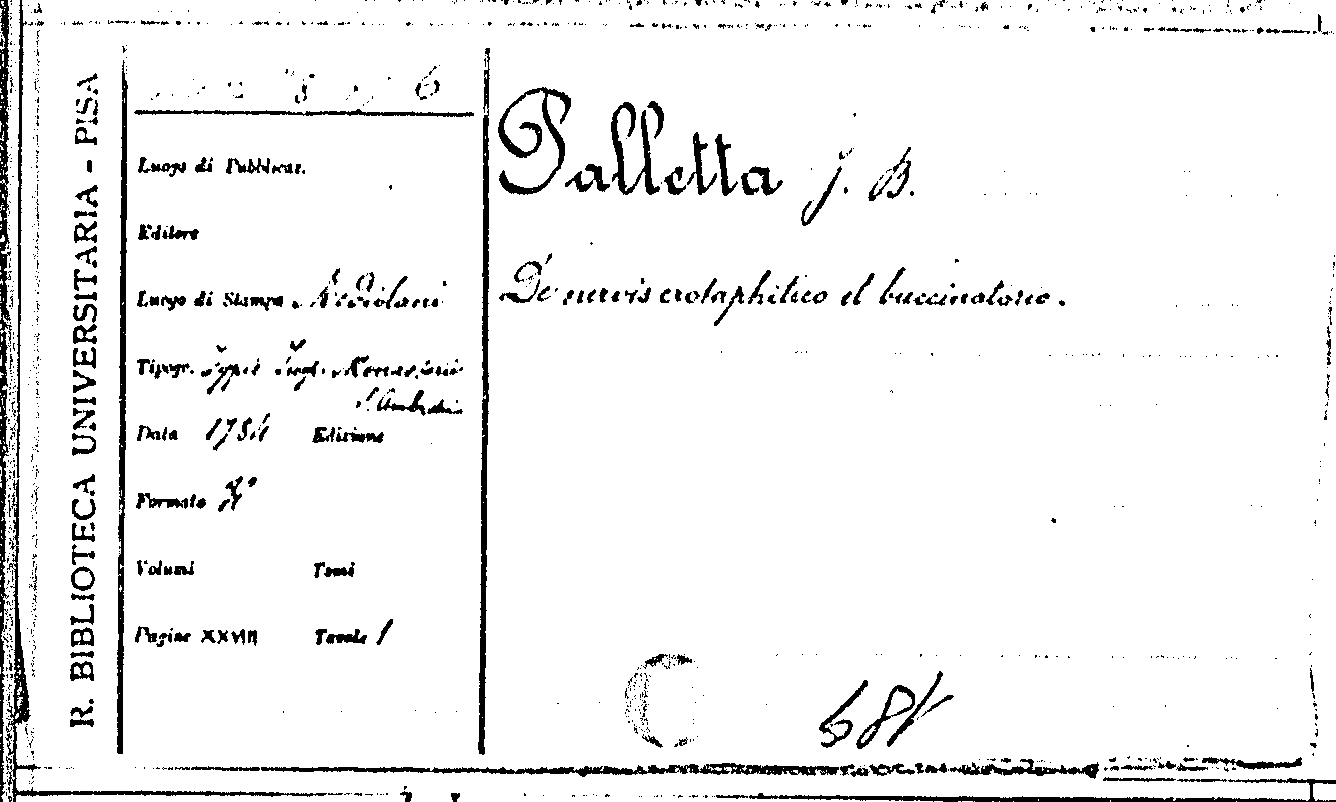 R. BIBLIOTECA UNIVERSITARIA - PISA
8 6
Luogo di Pubblicaz.
Editore
Luogo di Stampa Mediolani
Tipogr. Typis
Data 1784 Edizione
Formato
Volumi Tomi
Pagine XXVIII Tavole 1
Palletta J. B.
De nervis crotaphitico et buccinatorio.